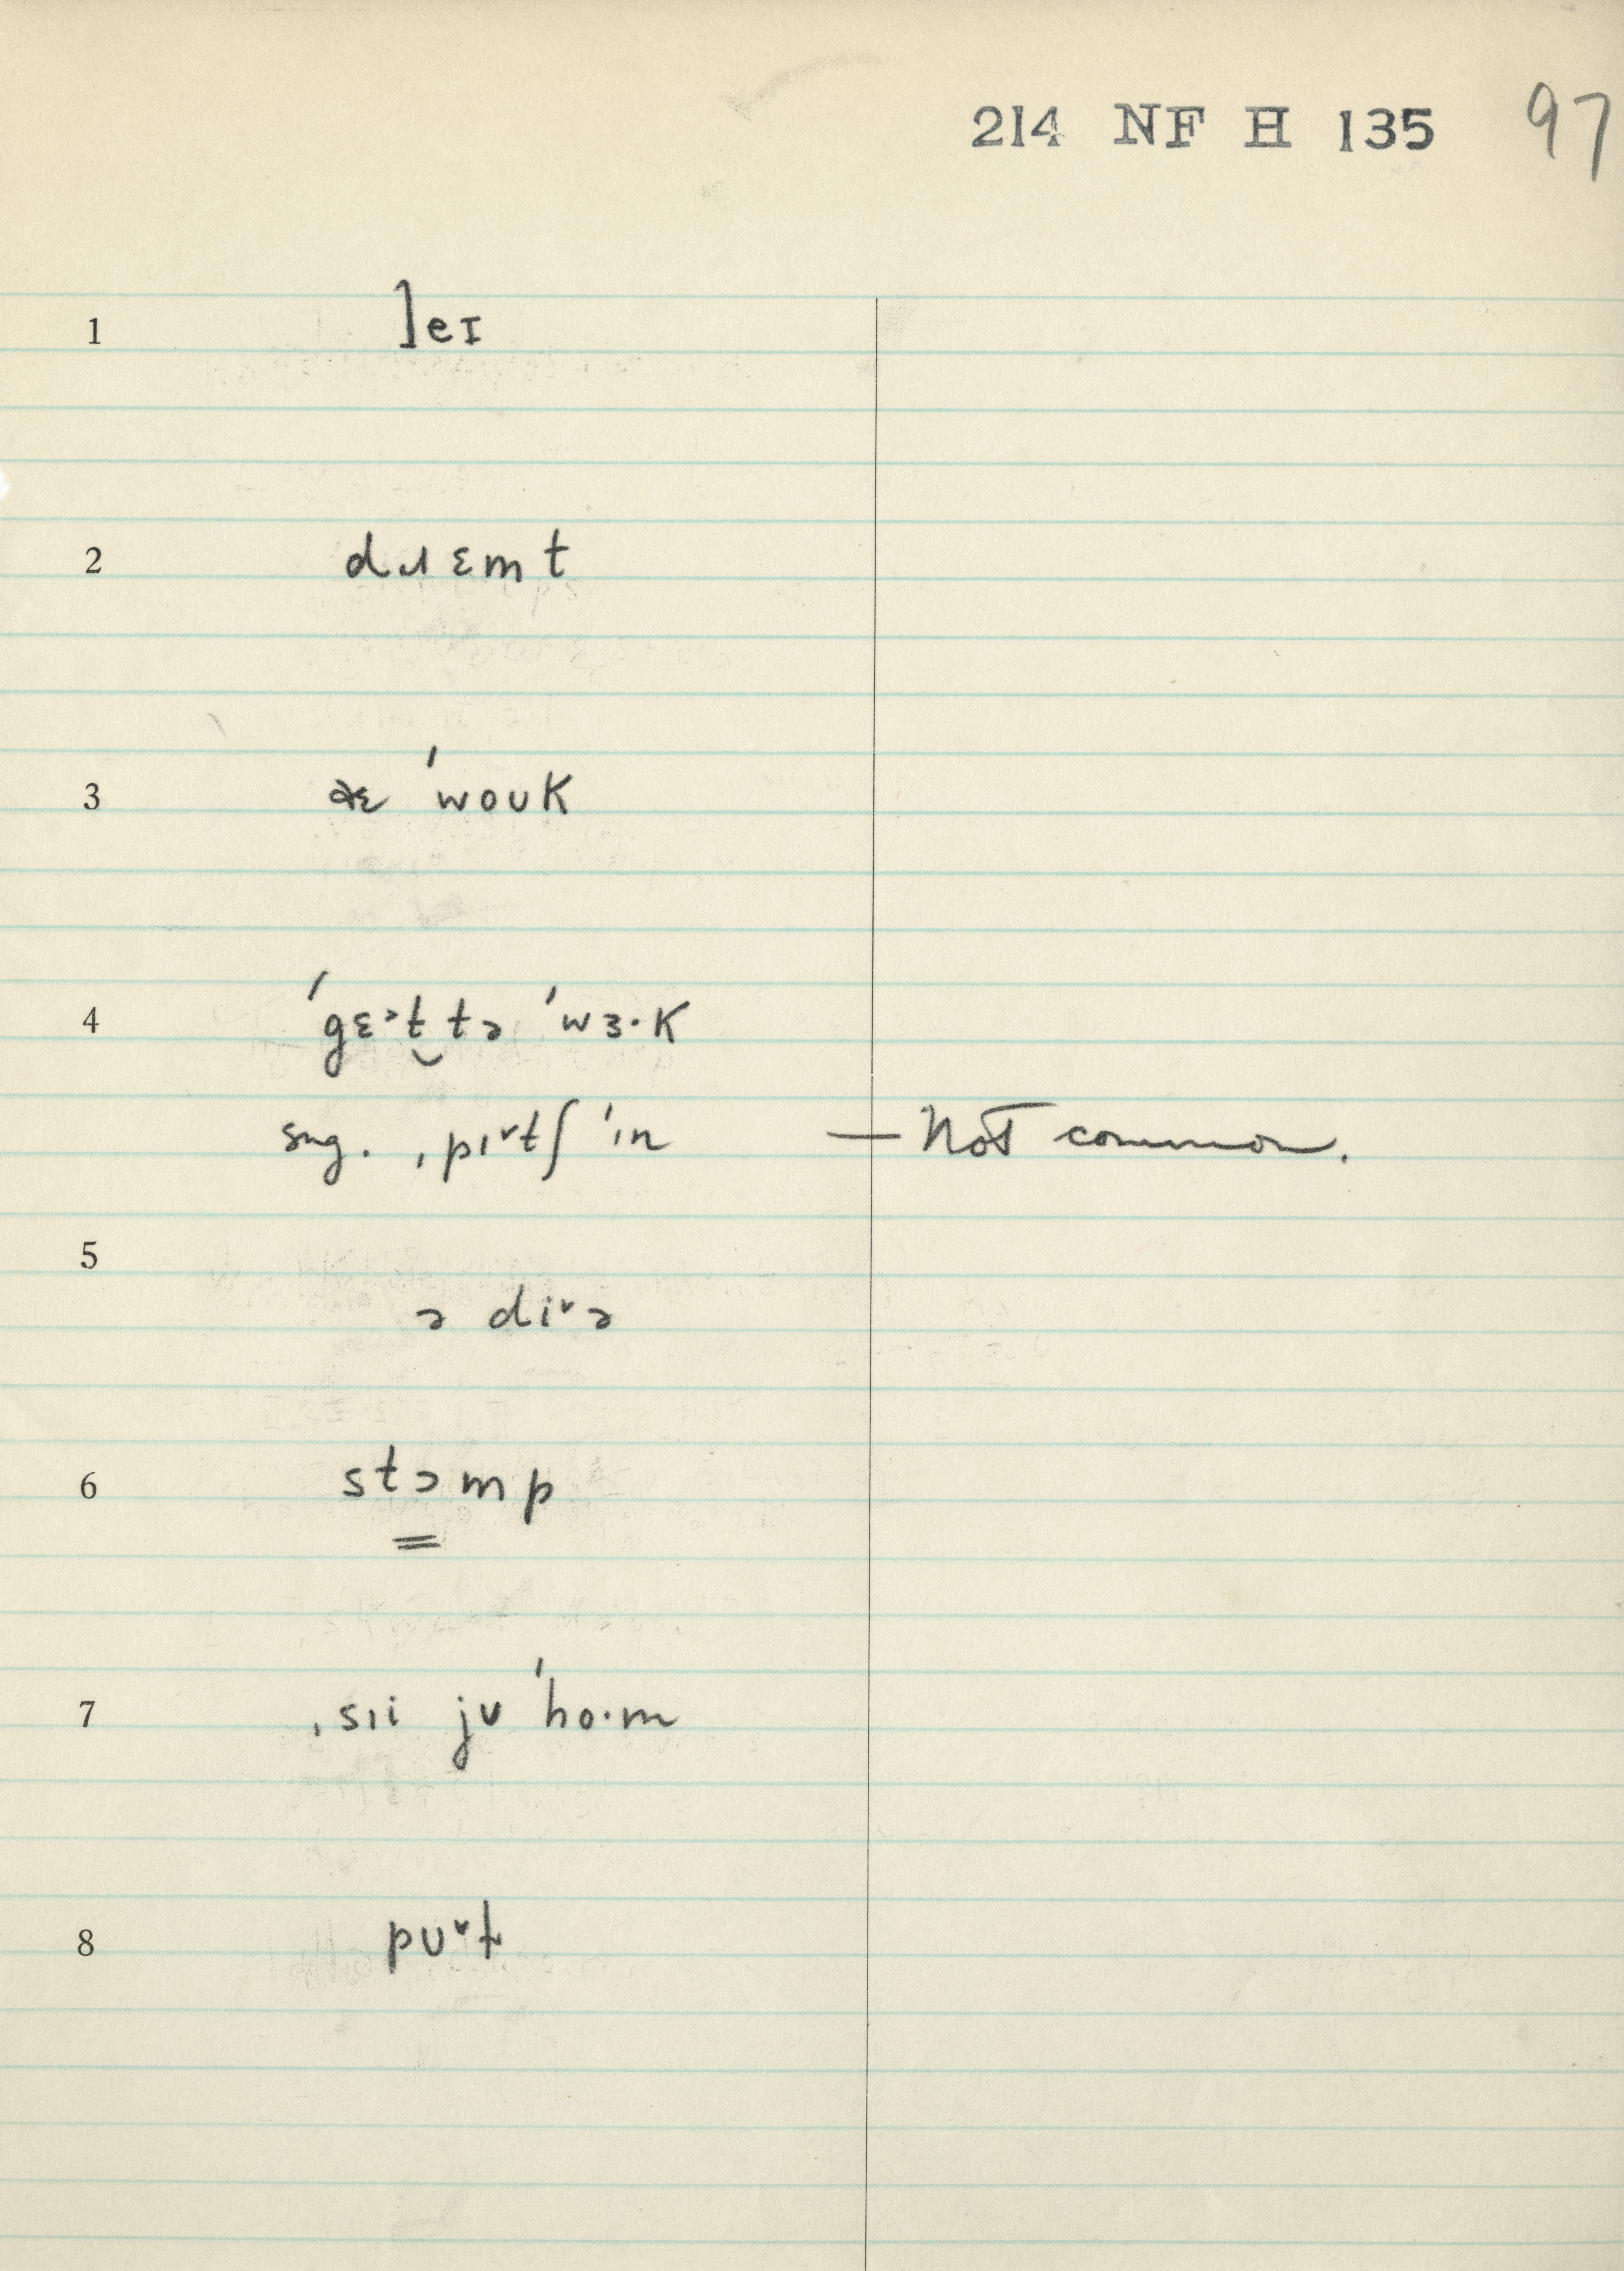 214 NF H 135 97
1 ]eɪ
2 dɹɛmt
3 əɛ 'woʊk
4 'gɛ˃t̬ tə 'wɜ·k
sug. ˌpɪ˅tʃ 'ɪn — Not common.
5
ə di˅ə
6 stɔmp
7 ˌsɪi jʊ 'ho·m
8 pʊ˅t